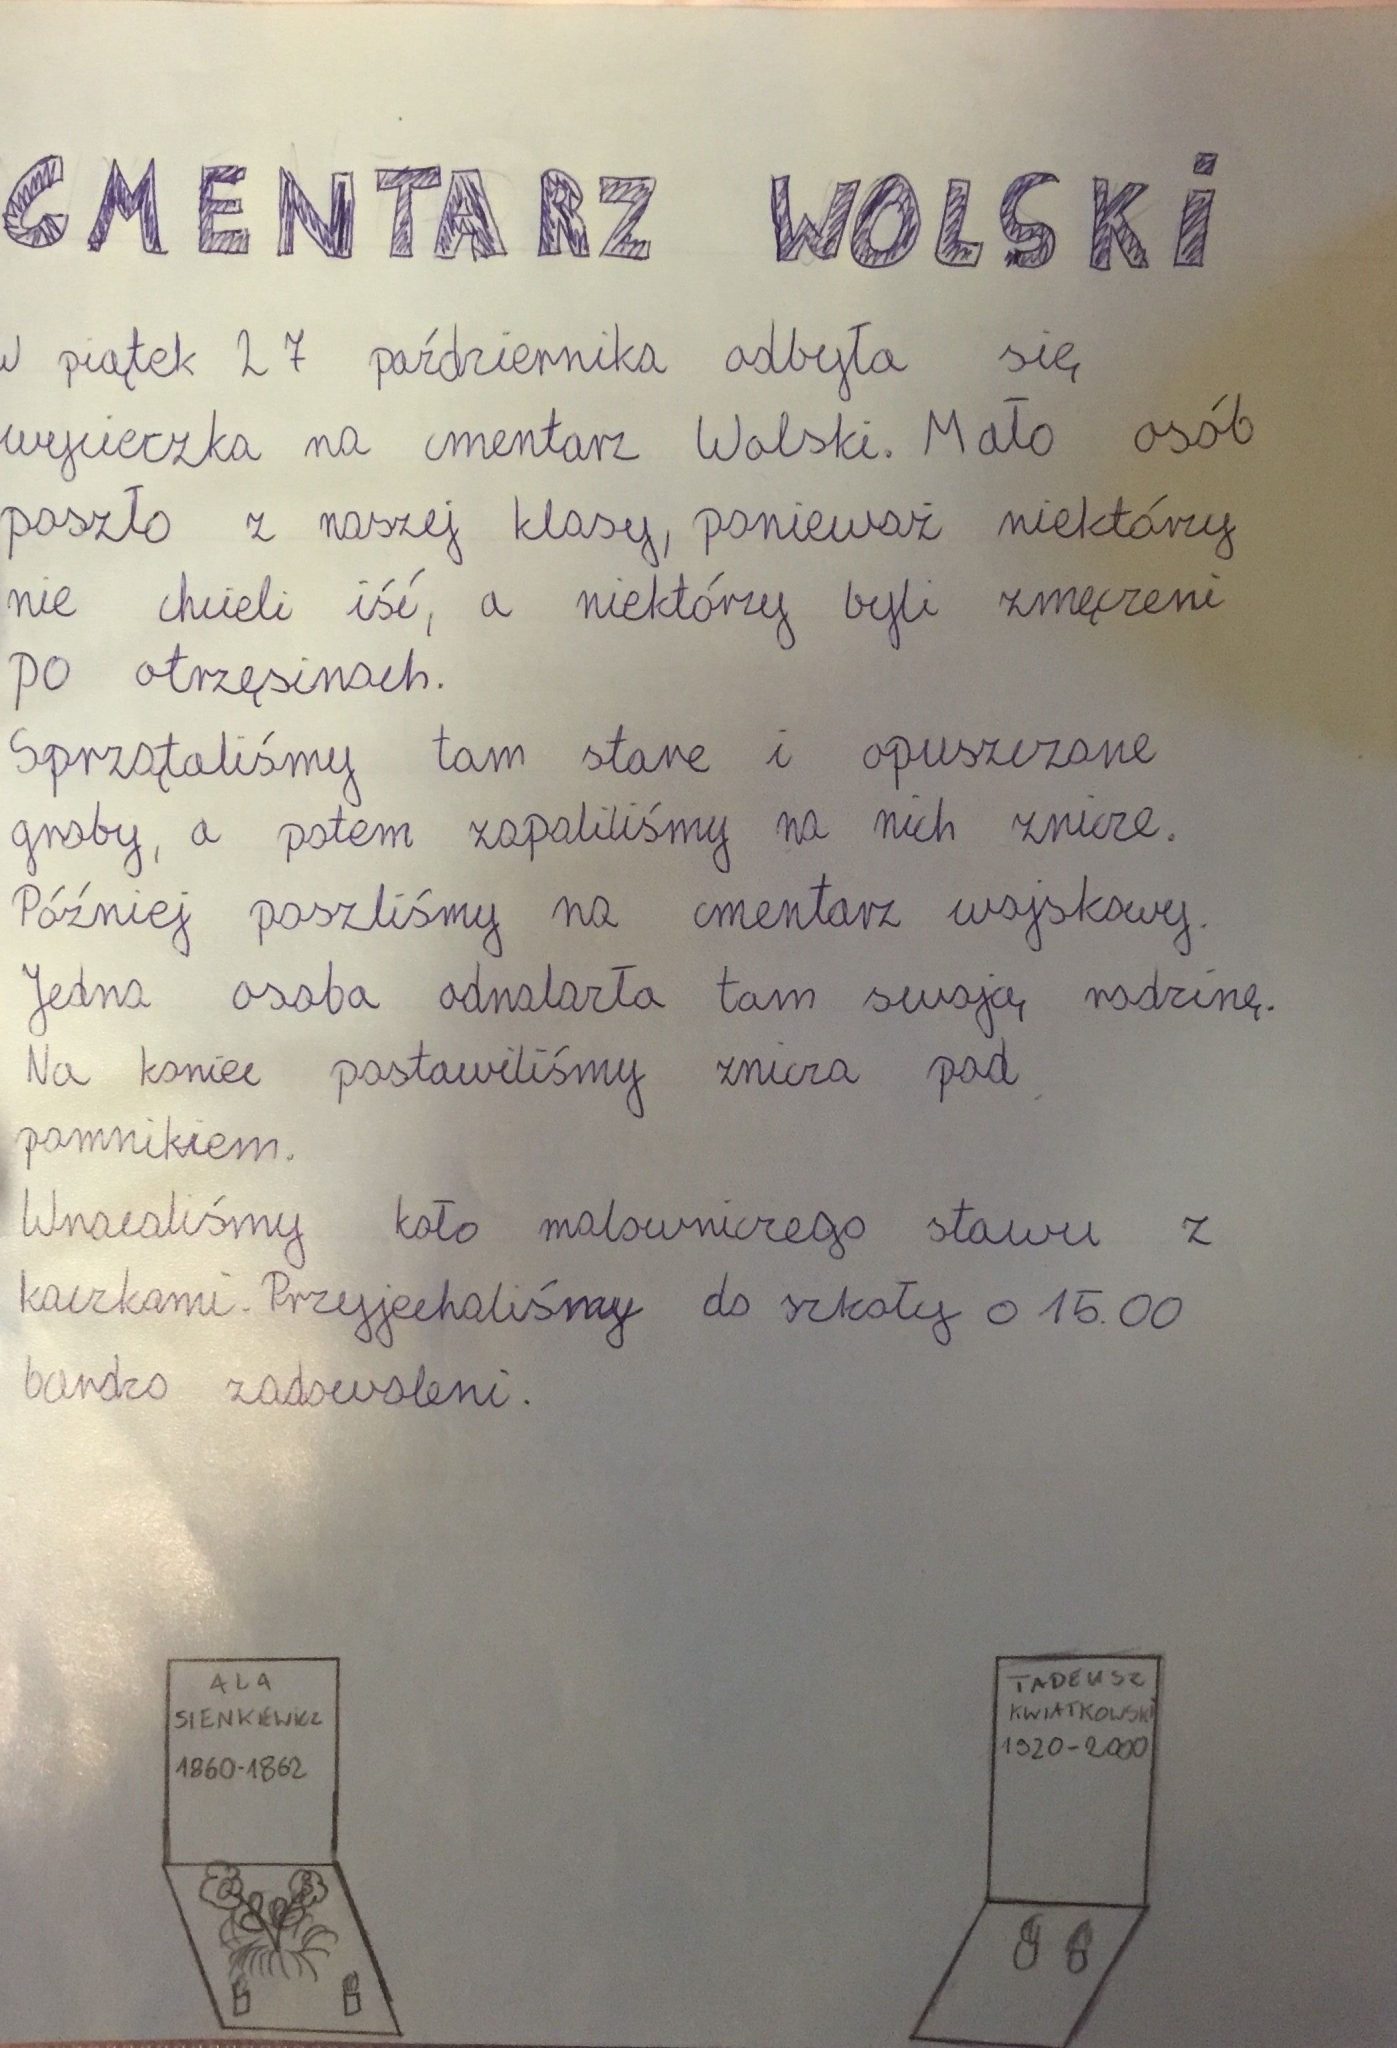 CMENTARZ WOLSKI
W piątek 27 października odbyła się
wycieczka na cmentarz Wolski. Mało osób
poszło z naszej klasy, ponieważ niektórzy
nie chcieli iść, a niektórzy byli zmęczeni
po otrzęsinach.
Sprzątaliśmy tam stare i opuszczone
groby, a potem zapaliliśmy na nich znicze.
Później poszliśmy na cmentarz wojskowy.
Jedna osoba odnalazła tam swoją rodzinę.
Na koniec postawiliśmy znicza pod
pomnikiem.
Wracaliśmy koło malowniczego stawu z
kaczkami. Przyjechaliśmy do szkoły o 15.00
bardzo zadowoleni.
ALA
SIENKIEWICZ
1860-1862
TADEUSZ
KWIATKOWSKI
1920-2000